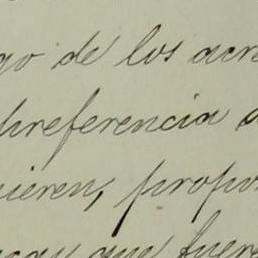 go de los acre
preferencia a
uieren, propor
que fuer